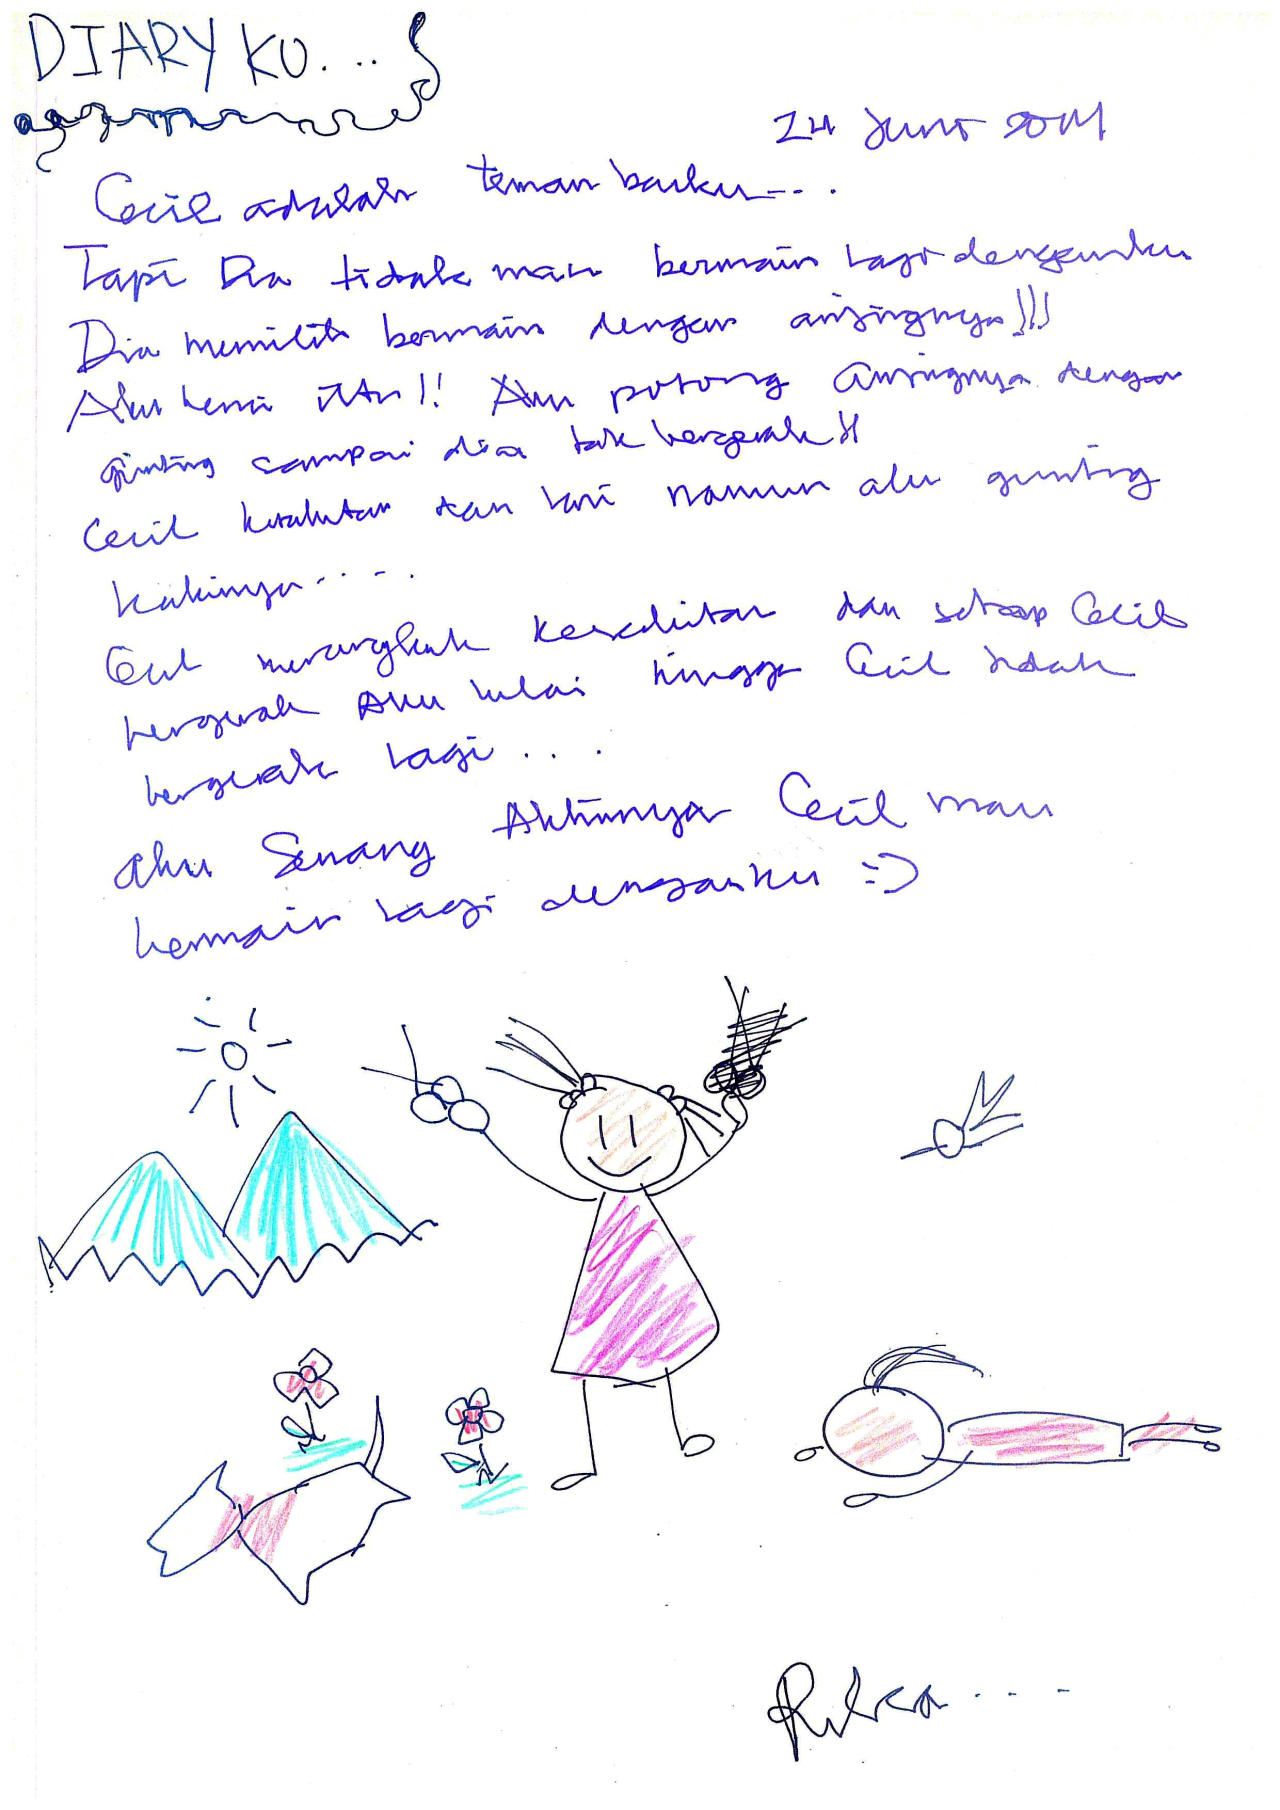 DIARY KU...
24 Juni 2001
Cecil adalah teman baikku....
Tapi Dia tidak mau bermain lagi denganku
Dia memilih bermain dengan anjingnya!!!
Aku benci itu!! Aku potong anjingnya dengan
gunting sampai dia tak bergerak!!
Cecil ketakutan dan lari namun aku gunting
kakinya.....
Cecil merangkak kesakitan dan setiap Cecil
bergerak Aku hingga Cecil tidak
bergerak lagi....
aku Senang Akhirnya Cecil mau
bermain lagi denganku :)